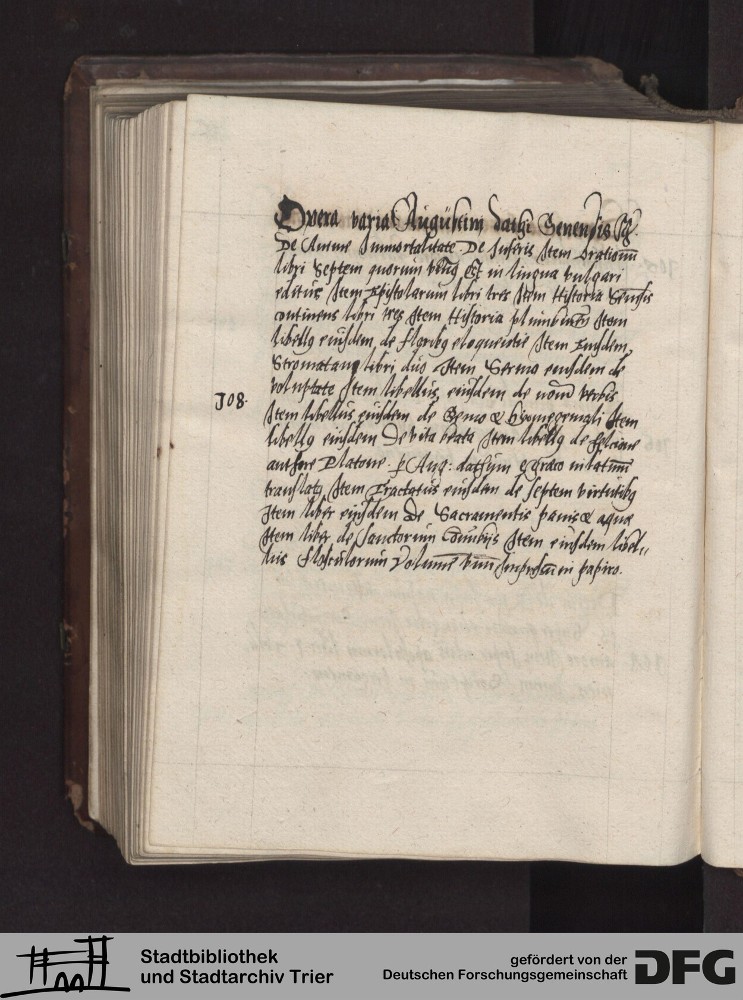 Opera varia Augustini dathi Senensis
De Anime Immortalitate De Inferis Item Orationum
libri Septem quorum vnus est in lingua vulgari
editus, Item Epistolarum libri tres Item Historia Senensis
continens libri tres Item Historia plumbinensis Item
libellus eiusdem, de floribus eloquentie Item Eiusdem,
Stromatum libri duo Item Sermo eiusdem de
voluptate Item libellus eiusdem de verbis
J08.
Item libellus eiusdem de Item
libellus eiusdem De vita beata Item libellus de
authore Platone. per Aug. dathum e greco in latinum
translatus Item Tractatus eiusdem de septem virtutibus
Item liber eiusdem De Sacramentis panis & aque
Item liber de Sanctorum Item eiusdem libel„
lus flosculorum Volumen vnum Impressum in papiro.
Stadtbibliothek
und Stadtarchiv Trier
gefördert von der
Deutschen Forschungsgemeinschaft
DFG